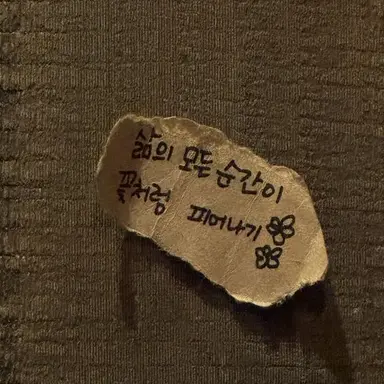 삶의 모든 순간이
꽃처럼 피어나기